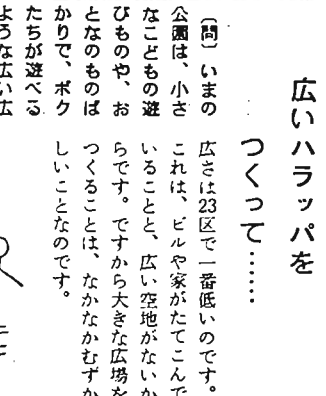 広いハラッパを
つくって……
〔問〕いまの
公園は、小さ
なこどもの遊
びものや、お
となのものば
かりで、ボク
たちが遊べる
ような広い広
広さは23区で一番低いのです。
これは、ビルや家がたてこんで
いることと、広い空地がないか
らです。ですから大きな広場を
つくることは、なかなかむずか
しいことなのです。